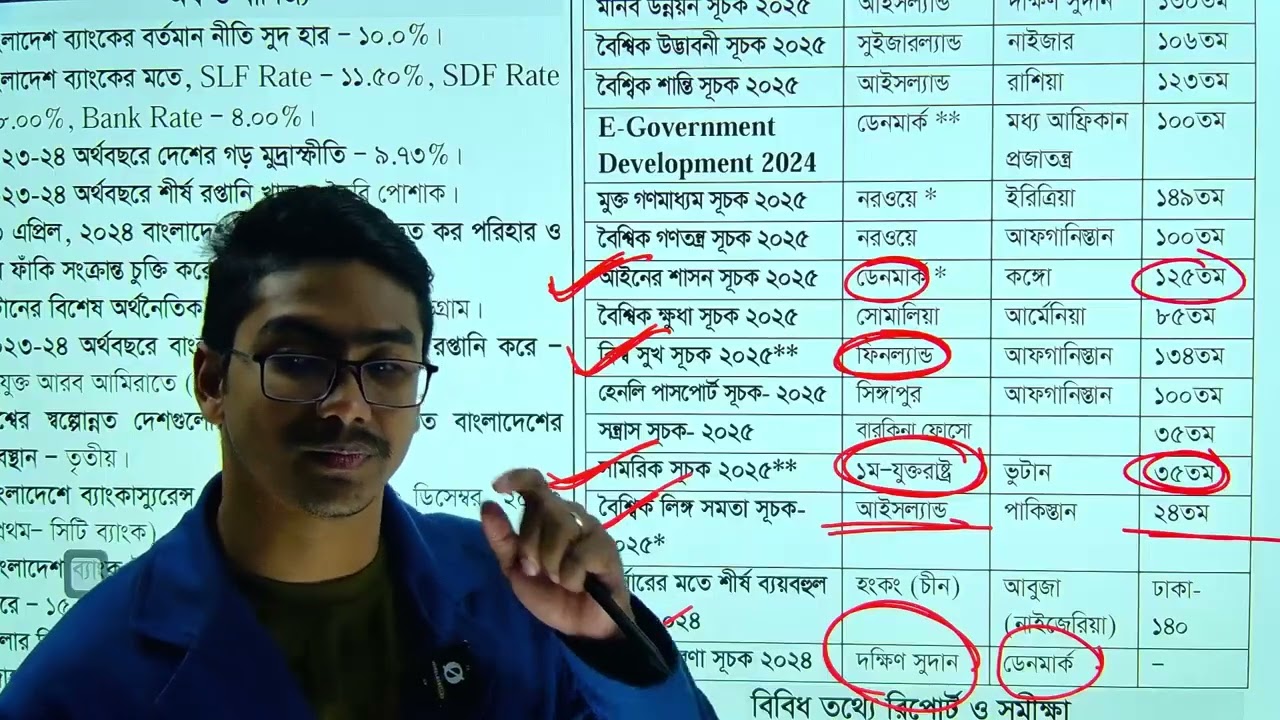 লাদেশ ব্যাংকের বর্তমান নীতি সুদ হার – ১০.০%।
লাদেশ ব্যাংকের মতে, SLF Rate – ১১.৫০%, SDF Rate
৮.০০%, Bank Rate – ৪.০০%।
২৩-২৪ অর্থবছরে দেশের গড় মুদ্রাস্ফীতি – ৯.৭৩%।
২৩-২৪ অর্থবছরে শীর্ষ রপ্তানি পোশাক।
এপ্রিল, ২০২৪ কর পরিহার ও
ফাঁকি সংক্রান্ত চুক্তি
বিশেষ অর্থনৈতিক গ্রাম।
২৩-২৪ অর্থবছরে রপ্তানি করে –
যুক্ত আরব আমিরাতে (
শ্বের স্বল্পোন্নত বাংলাদেশের
– তৃতীয়।
ংলাদেশে ব্যাংকাস্যুরেন্স ডিসেম্বর,
প্রথম– সিটি ব্যাংক)
ংলাদেশ
রে – ১৫
মানব উন্নয়ন সূচক ২০২৫ আইসল্যান্ড দক্ষিণ সুদান ১৩০তম
বৈশ্বিক উদ্ভাবনী সূচক ২০২৫ সুইজারল্যান্ড নাইজার ১০৬তম
বৈশ্বিক শান্তি সূচক ২০২৫ আইসল্যান্ড রাশিয়া ১২৩তম
E-Government ডেনমার্ক ** মধ্য আফ্রিকান ১০০তম
Development 2024 প্রজাতন্ত্র
মুক্ত গণমাধ্যম সূচক ২০২৫ নরওয়ে * ইরিত্রিয়া ১৪৯তম
বৈশ্বিক গণতন্ত্র সূচক ২০২৫ নরওয়ে আফগানিস্তান ১০০তম
আইনের শাসন সূচক ২০২৫ ডেনমার্ক * কঙ্গো ১২৫তম
বৈশ্বিক ক্ষুধা সূচক ২০২৫ সোমালিয়া আর্মেনিয়া ৮৫তম
বিশ্ব সুখ সূচক ২০২৫** ফিনল্যান্ড আফগানিস্তান ১৩৪তম
হেনলি পাসপোর্ট সূচক- ২০২৫ সিঙ্গাপুর আফগানিস্তান ১০০তম
সন্ত্রাস সূচক- ২০২৫ বারকিনা ফোসো ৩৫তম
সামরিক সূচক ২০২৫** ১ম–যুক্তরাষ্ট্র ভুটান ৩৫তম
বৈশ্বিক লিঙ্গ সমতা সূচক- আইসল্যান্ড পাকিস্তান ২৪তম
২০২৫*
মতে শীর্ষ ব্যয়বহুল হংকং (চীন) আবুজা ঢাকা-
(নাইজেরিয়া) ১৪০
সূচক ২০২৪ দক্ষিণ সুদান ডেনমার্ক –
বিবিধ তথ্যে রিপোর্ট ও সমীক্ষা